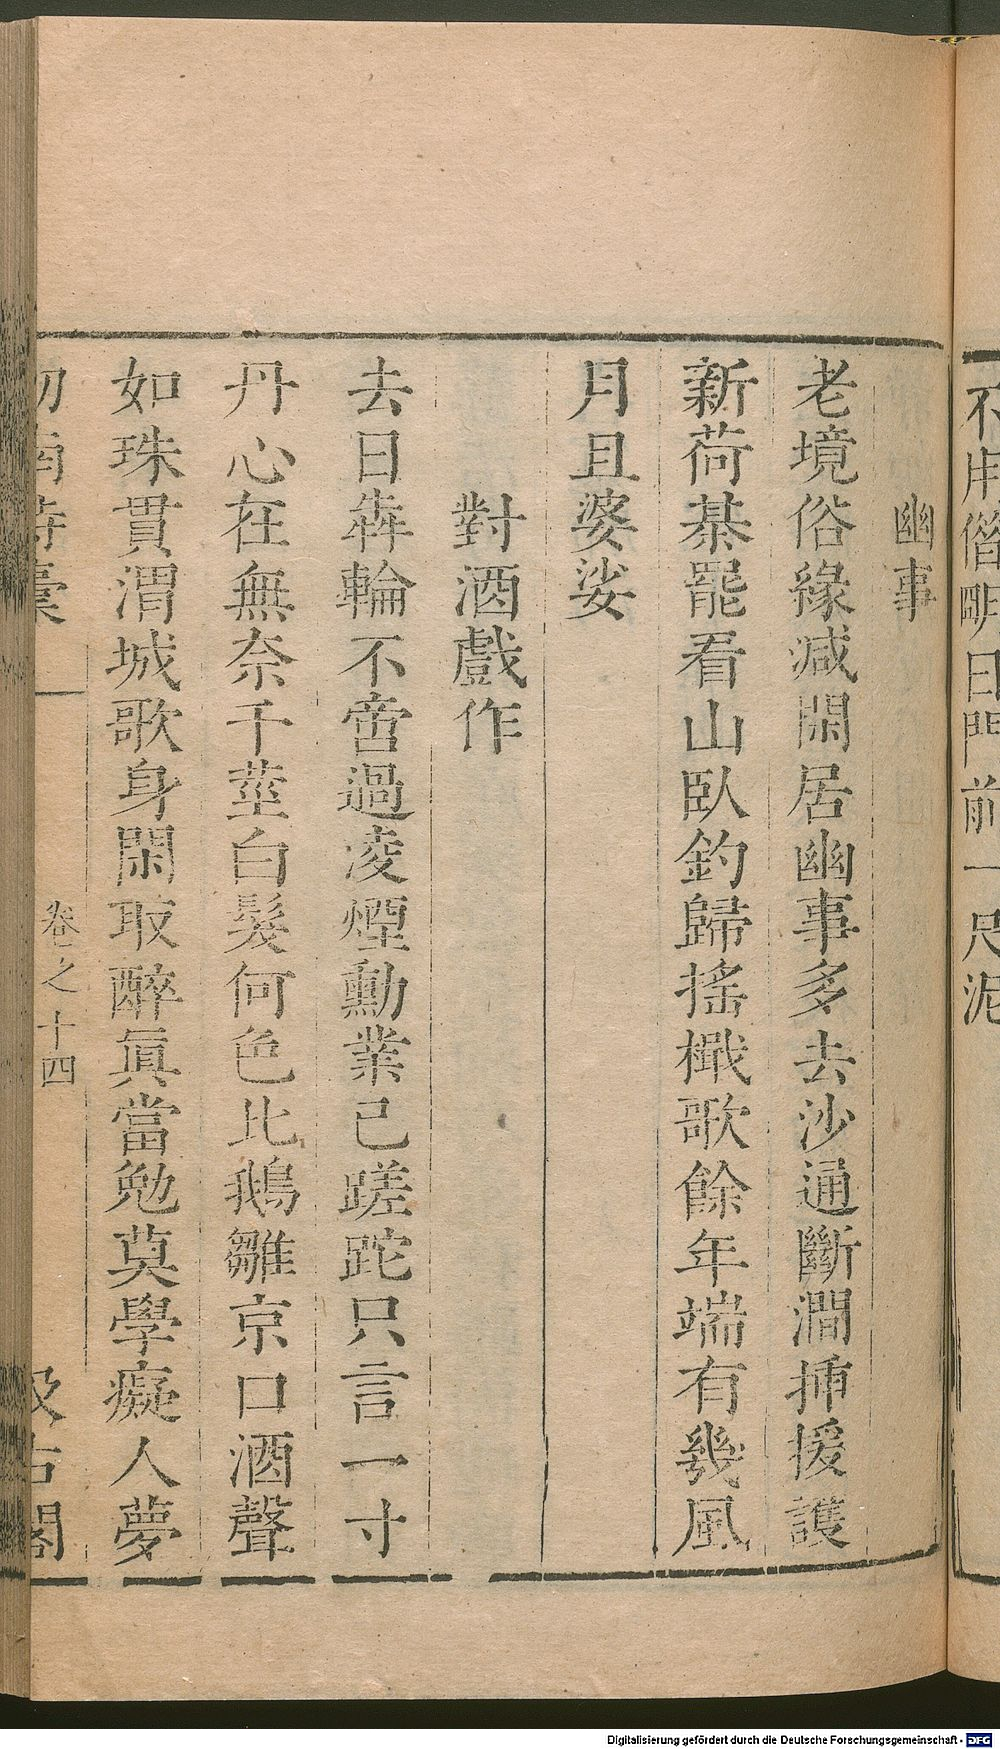 不用僭明日門前一尺泥
幽事
老境俗緣減閑居幽事多去沙通斷澗揷援護
新荷棊罷看山臥釣歸搖檝歌餘年端有幾風
月且婆娑
對酒戲作
去日犇輪不啻過凌煙勳業已蹉跎只言一寸
丹心在無奈千莖白髮何色比鵝雛京口酒聲
如珠貫渭城歌身閑取醉眞當勉莫學癡人夢
劒南詩稾 卷之十四 汲古閣
Digitalisierung gefördert durch die Deutsche Forschungsgemeinschaft - DFG